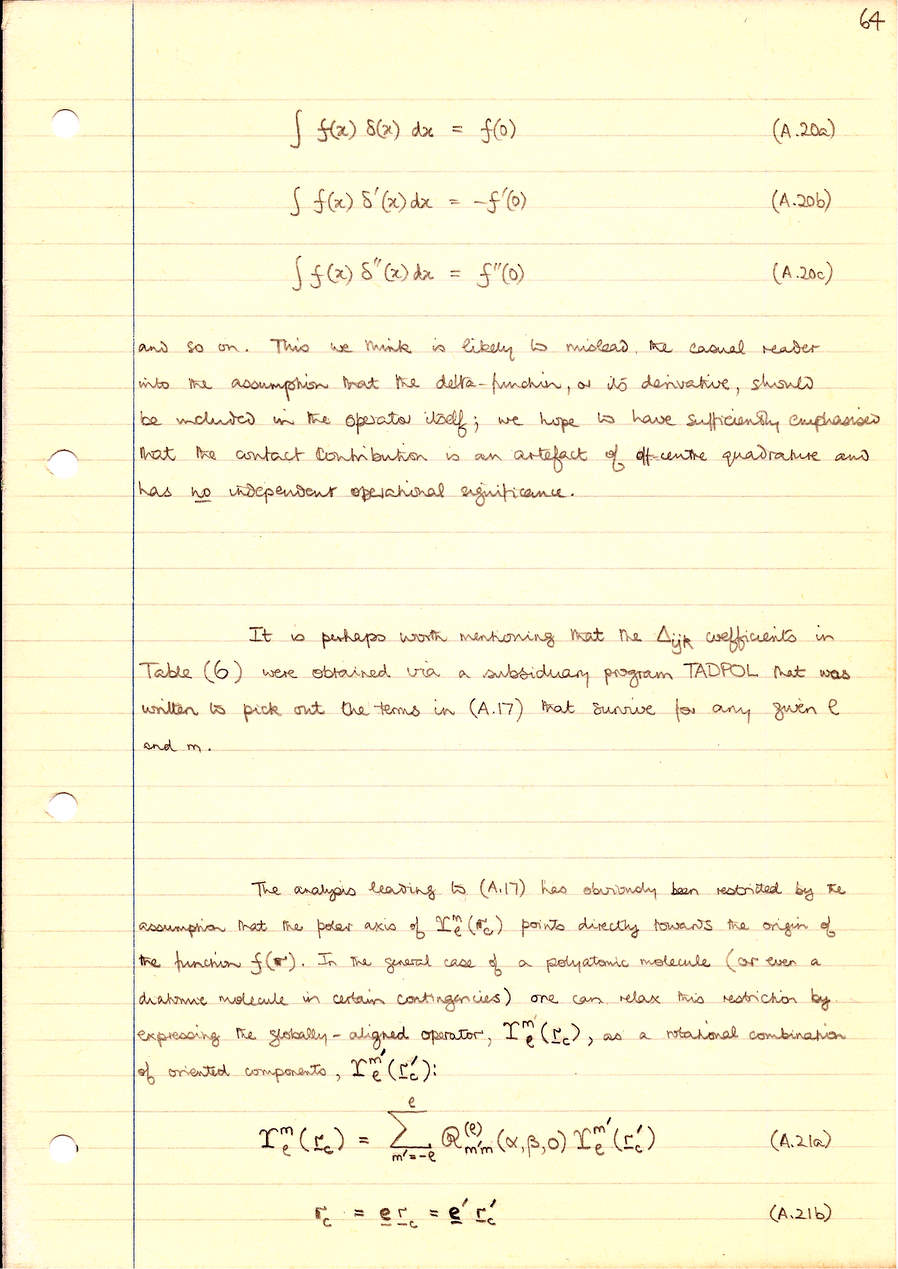 64
∫ f(x) δ(x) dx = f(0) (A.20a)
∫ f(x) δ′(x) dx = -f′(0) (A.20b)
∫ f(x) δ″(x) dx = f″(0) (A.20c)
and so on. This we think is likely to mislead the casual reader
into the assumption that the delta-function, or its derivative, should
be included in the operator itself; we hope to have sufficiently emphasised
that the contact contribution is an artefact of off-centre quadrature and
has no independent operational significance.
It is perhaps worth mentioning that the Δijk coefficients in
Table (6) were obtained via a subsiduary program TADPOL that was
written to pick out the terms in (A.17) that survive for any given ℓ
and m.
The analysis leading to (A.17) has obviously been restricted by the
assumption that the polar axis of ϒℓᵐ(r_c) points directly towards the origin of
the function f(r). In the general case of a polyatomic molecule (or even a
diatomic molecule in certain contingencies) one can relax this restriction by
expressing the globally-aligned operator, ϒℓᵐ(r_c), as a rotational combination
of oriented components, ϒℓᵐ′(r_c′):
ϒℓᵐ(r_c) = Σ_{m′=-ℓ}^{ℓ} ℛ_{m′m}^{(ℓ)}(α,β,0) ϒℓᵐ′(r_c′) (A.21a)
r_c = e r_c = e′ r_c′ (A.21b)